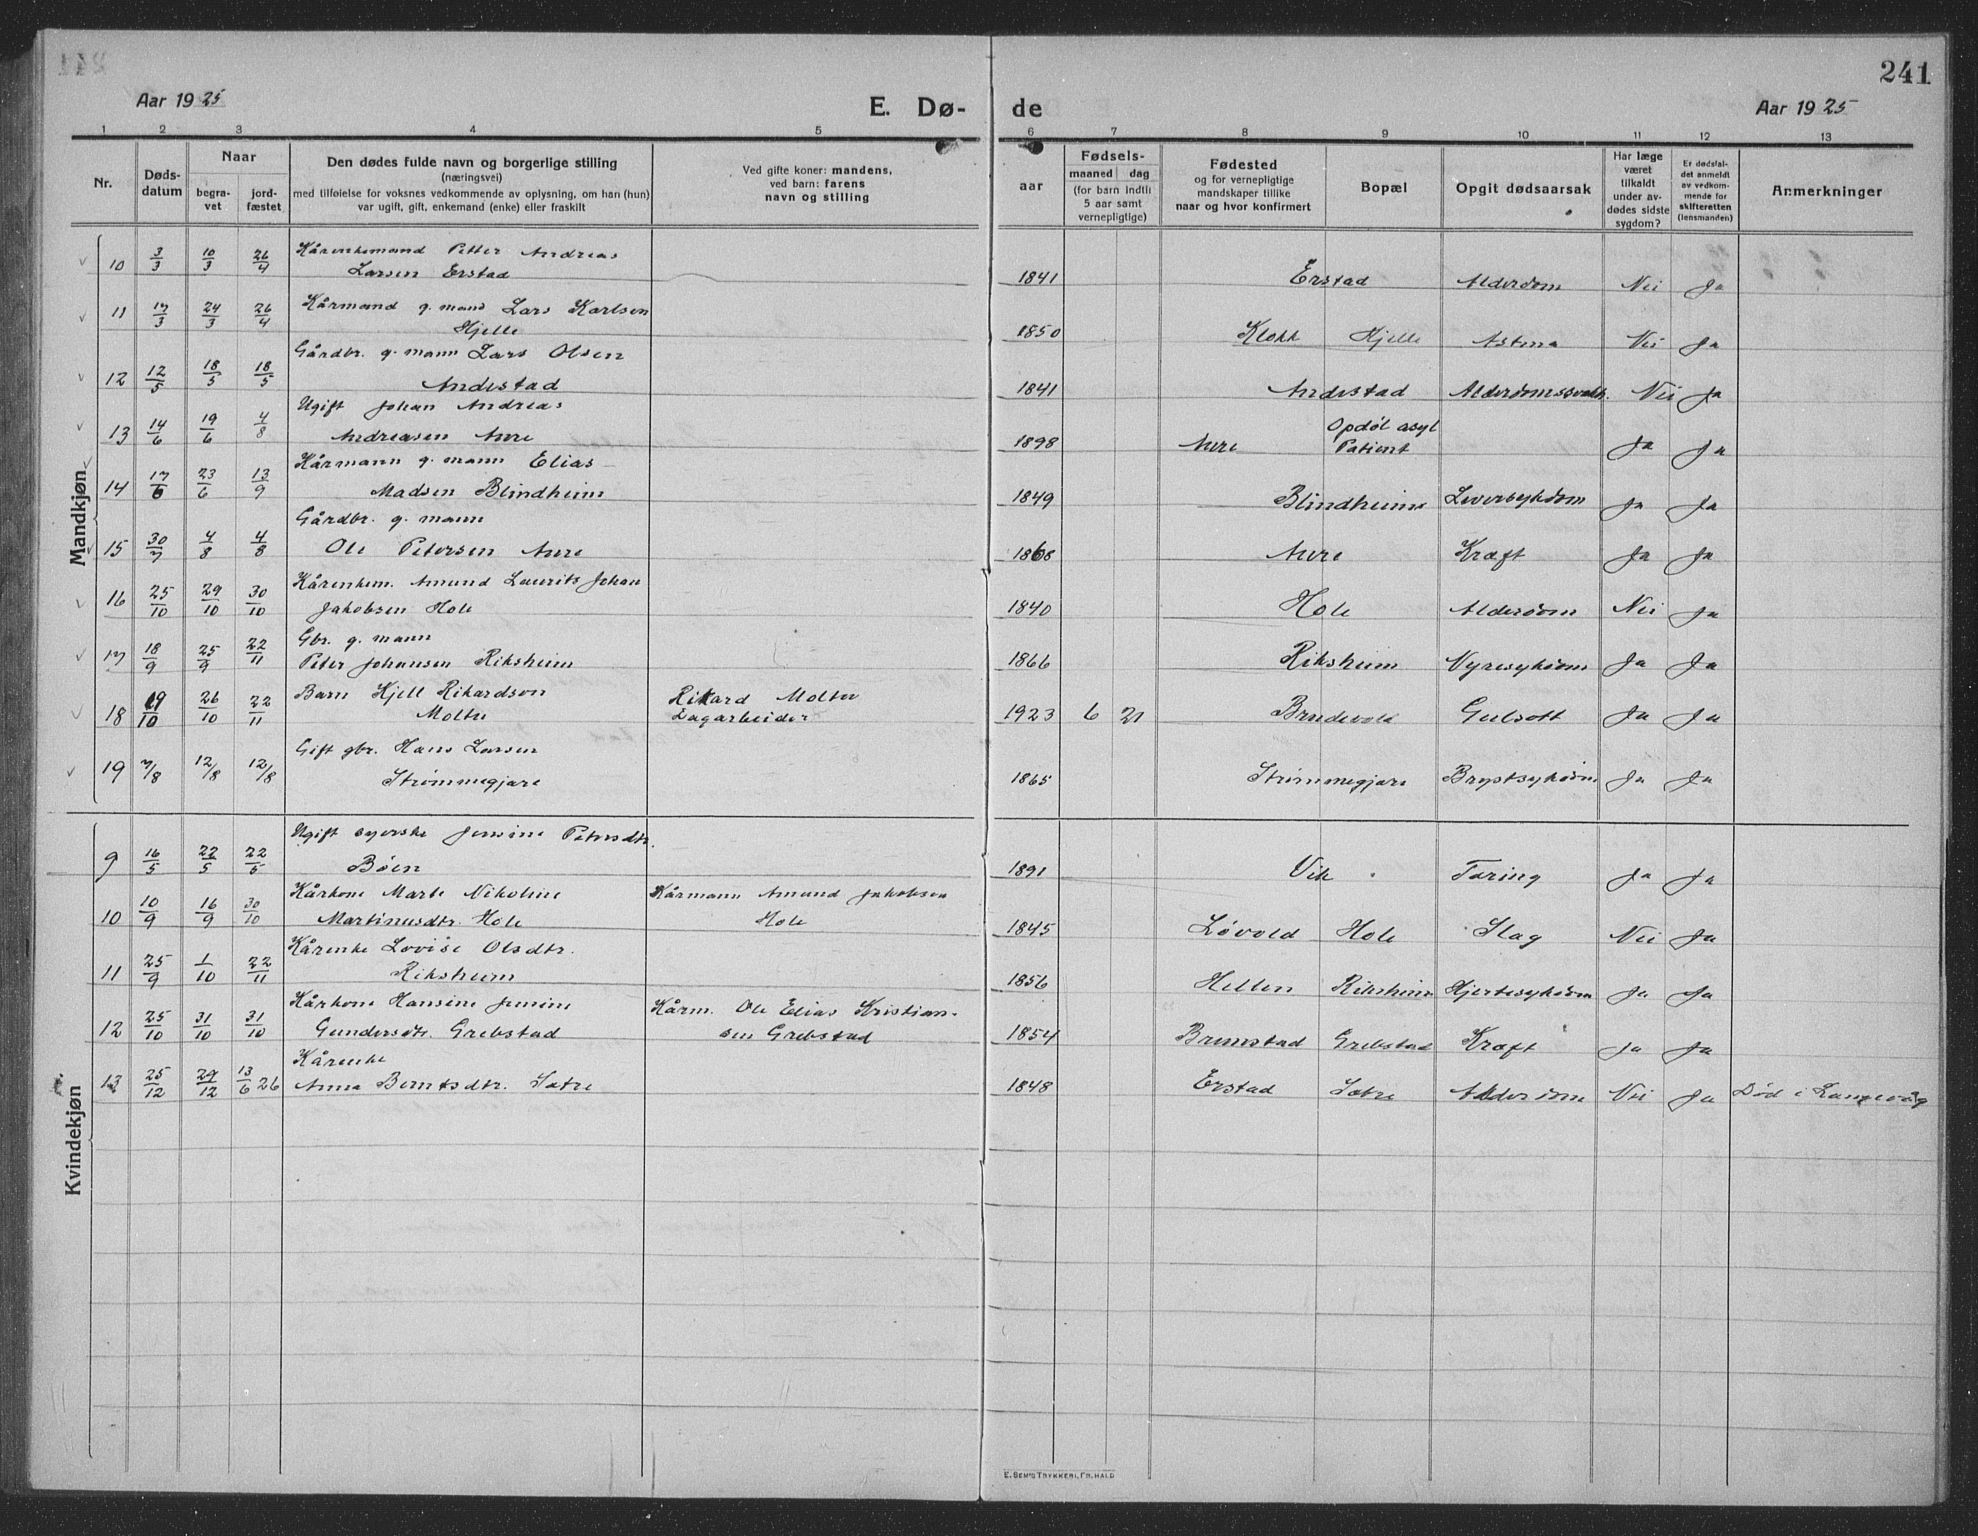 241
Aar 1925
E. Dø-
de
Aar 1925
1 2 3 4 5 6 7 8 9 10 11 12 13
Nr.
Døds-
datum
Naar
begra-
vet
jord-
fæstet
Den dødes fulde navn og borgerlige stilling
(næringsvei)
med tilføielse for voksnes vedkommende av oplysning, om han (hun)
var ugift, gift, enkemand (enke) eller fraskilt
Ved gifte koner: mandens,
ved barn: farens
navn og stilling
aar
Fødsels-
maaned dag
(for barn indtil
5 aar samt
vernepligtige)
Fødested
og for vernepligtige
mandskaper tillike
naar og hvor konfirmert
Bopæl
Opgit dødsaarsak
Har læge
været
tilkaldt
under av-
dødes sidste
sygdom?
Er dødsfal-
det anmeldt
av vedkom-
mende for
skifteretten
(lensmanden)
Anmerkninger
Mandkjøn
10 3/3 10/3 26/4 Kårenkemand Petter Andreas
Larsen Erstad 1841 Erstad Alderdom Nei Ja
11 17/3 24/3 26/4 Kårmand g. mand Lars Karlsen
Hjelle 1850 Klokk Hjelle Astma Nei Ja
12 12/5 18/5 18/5 Gårdbr. g. mann Lars Olsen
Andestad 1841 Andestad Nei Ja
13 14/6 19/6 4/8 Ugift Johan Andreas
Andreasen Aure 1898 Aure Opdøl asyl
Patient Ja Ja
14 17/6 23/6 13/9 Kårmann g. mann Elias
Madsen Blindheim 1849 Blindheim Leversykdom Ja Ja
15 30/7 4/8 4/8 Gårdbr. g. mann
Ole Petersen Aure 1868 Aure Kræft Ja Ja
16 25/10 29/10 30/10 Kårenkem. Amund Laurits Johan
Jakobsen Hole 1840 Hole Alderdom Nei Ja
17 18/9 25/9 22/11 Gbr. g. mann
Peter Johansen Riksheim 1866 Riksheim Nyresykdom Ja Ja
18 19/10 26/10 22/11 Barn Kjell Rikardson
Moltu Rikard Moltu
Dagarbeider 1923 6 21 Brudevold Gulsott Ja Ja
19 7/8 12/8 12/8 Gift gbr. Hans Larsen
Strømmegjære 1865 Strømmegjære Brystsykdom Ja Ja
Kvindekjøn
9 16/5 22/5 22/5 Ugift syerske Jensine Petersdtr.
Bøen 1891 Vik Tæring Ja Ja
10 10/9 16/9 30/10 Kårkone Marte Nikoline
Martinusdtr. Hole Kårmann Amund Jakobsen
Hole 1845 Løvold Hole Slag Nei Ja
11 25/9 1/10 22/11 Kårenke Lovise Olsdtr.
Riksheim 1856 Hellen Riksheim Hjertesykdom Ja Ja
12 25/10 31/10 31/10 Kårkone Hansine Jensine
Gundersdtr. Grebstad Kårm. Ole Elias Kristian-
sen Grebstad 1854 Brunstad Grebstad Kræft Ja Ja
13 25/12 29/12 13/6 26 Kårenke
Anna Berntsdtr. Sætre 1848 Erstad Sætre Alderdom Nei Ja Død i Langevåg
E. Sem's Trykkeri, Fr.hald